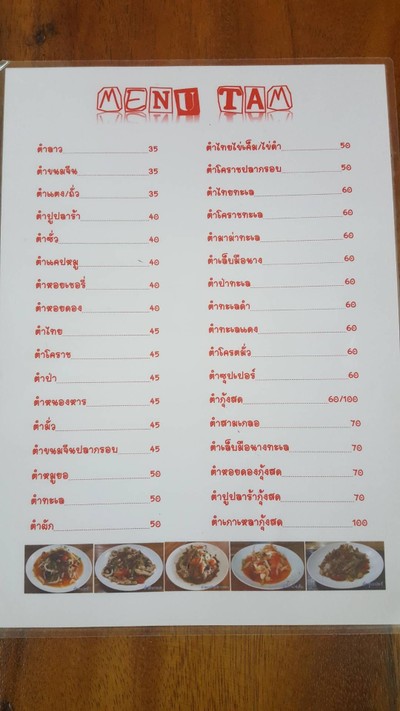 MENU TAM
ตำลาว 35
ตำขนมจีน 35
ตำแตง/ถั่ว 35
ตำปูปลาร้า 40
ตำซั่ว 40
ตำแคปหมู 40
ตำหอยเชอรี่ 40
ตำหอยดอง 40
ตำไทย 45
ตำโคราช 45
ตำป่า 45
ตำหนองหาร 45
ตำมั่ว 45
ตำขนมจีนปลากรอบ 45
ตำหมูยอ 50
ตำทะเล 50
ตำลัก 50
ตำไทยไข่เค็ม/ไข่ดำ 50
ตำโคราชปลากรอบ 50
ตำไทยทะเล 60
ตำโคราชทะเล 60
ตำมาม่าทะเล 60
ตำเล็บมือนาง 60
ตำป่าทะเล 60
ตำทะเลดำ 60
ตำทะเลแดง 60
ตำโครตมั่ว 60
ตำซุปเปอร์ 60
ตำกุ้งสด 60/100
ตำสามเกลอ 70
ตำเล็บมือนางทะเล 70
ตำหอยดองกุ้งสด 70
ตำปูปลาร้ากุ้งสด 70
ตำเกาเหลากุ้งสด 100